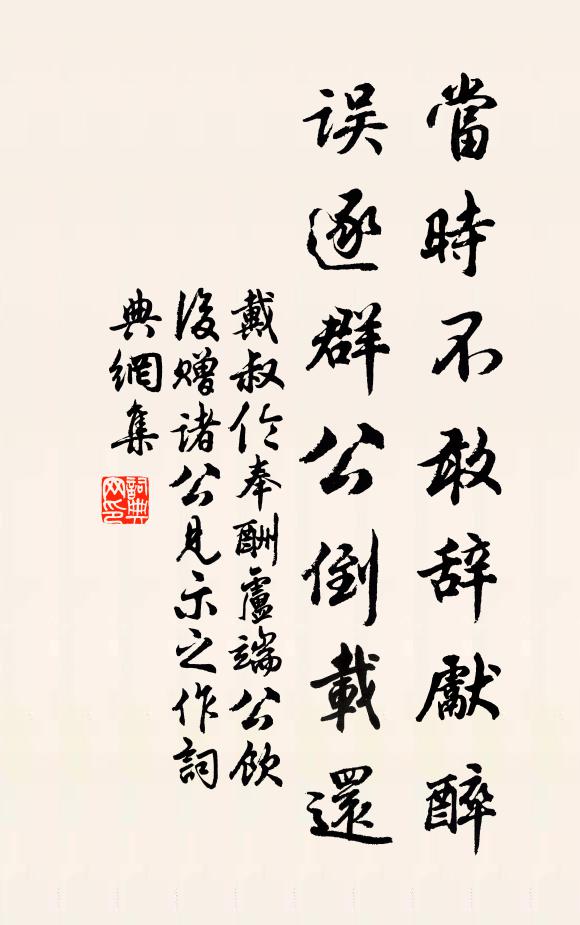 當時不敢辞獻醉
误逐群公倒載還
戴叔伦奉酬盧端公飲
後赠诸公見示之作詞
典網集
詞典
网印